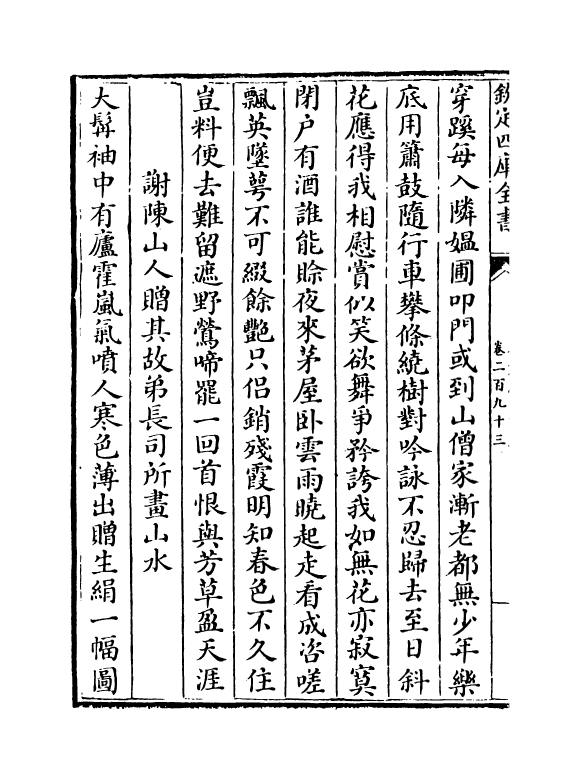 欽定四庫全書
卷二百九十三
穿蹊每入隣媼圃叩門或到山僧家漸老都無少年樂
底用簫鼓隨行車攀條繞樹對吟詠不忍歸去至日斜
花應得我相慰賞似笑欲舞爭矜誇我如無花亦寂寞
閉户有酒誰能賖夜來茅屋卧雲雨曉起走看成咨嗟
飄英墜萼不可綴餘艷只侣銷殘霞明知春色不久住
豈料便去難留遮野鶯啼罷一回首恨與芳草盈天涯
謝陳山人贈其故弟長司所畫山水
大髯袖中有廬霍嵐氣噴人寒色薄出贈生絹一幅圖